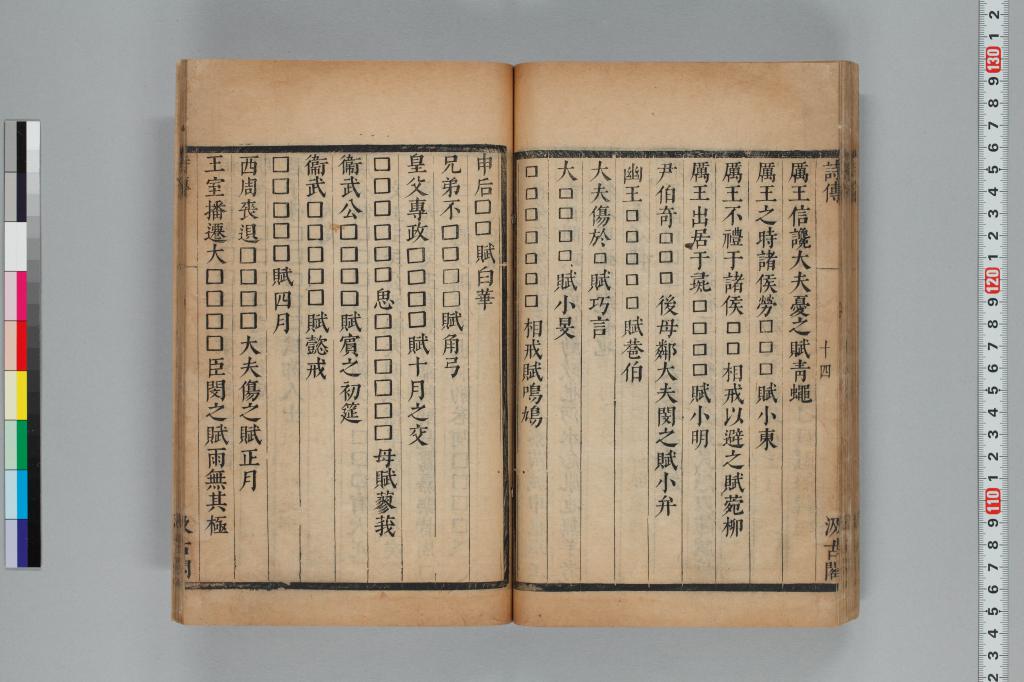 詩傳
十四
汲古閣
厲王信讒大夫憂之賦青蠅
厲王之時諸侯勞□□□賦小東
厲王不禮于諸侯□□相戒以避之賦菀柳
厲王出居于彘□□□□賦小明
尹伯奇□□□後母鄰大夫閔之賦小弁
幽王□□□□□賦巷伯
大夫傷於□賦巧言
大□□□□賦小旻
□□□□□□□相戒賦鳴鳩
申后□□賦白華
兄弟不□□□□賦角弓
皇父專政□□□□賦十月之交
□□□□□□思□□□□□□母賦蓼莪
衞武公□□□□賦賓之初筵
衞武□□□□□賦懿戒
□□□□□賦四月
西周喪退□□□□大夫傷之賦正月
王室播遷大□□□□臣閔之賦雨無其極